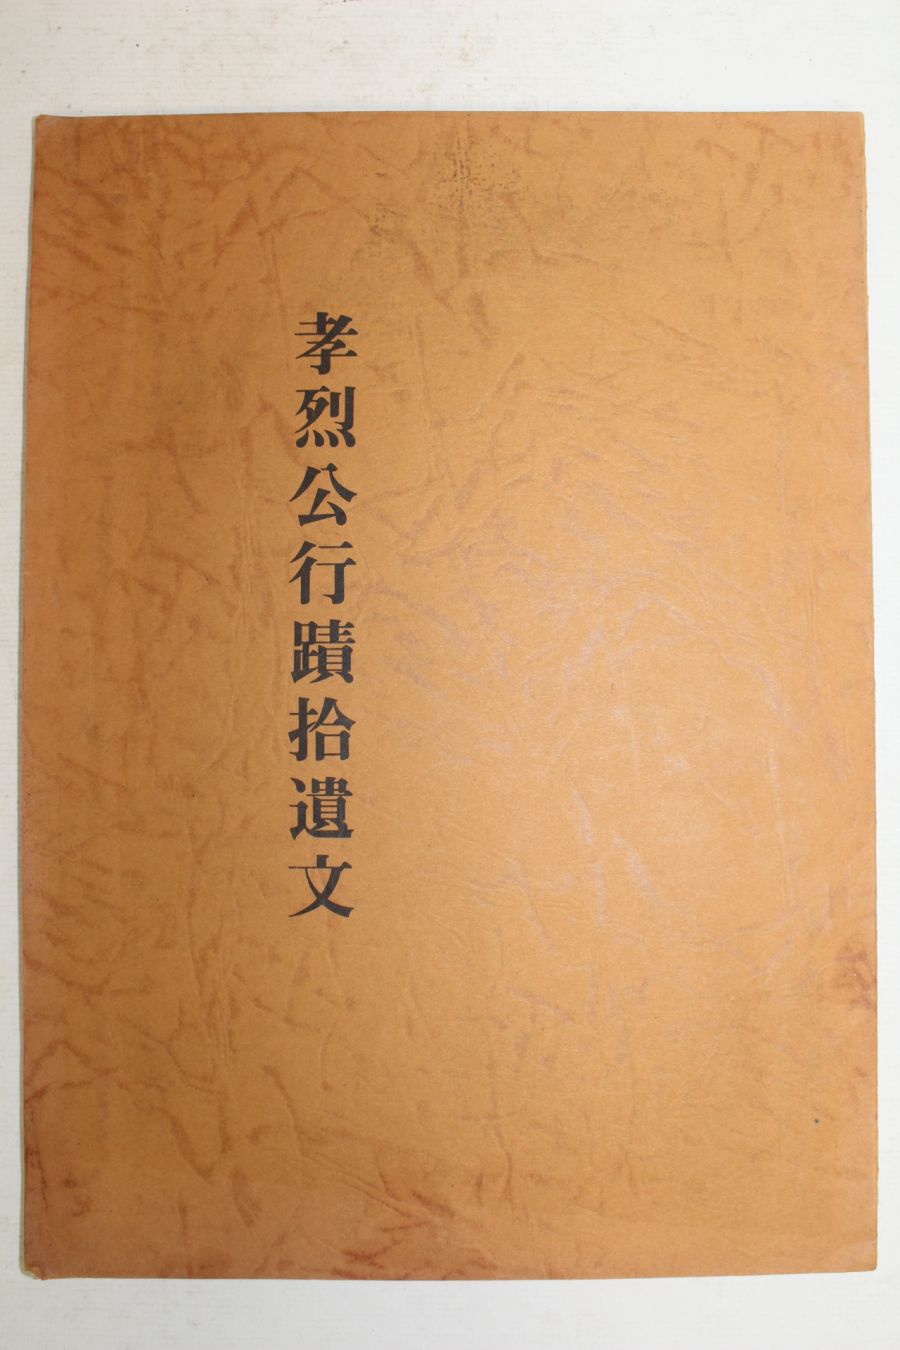 孝烈公行蹟拾遺文